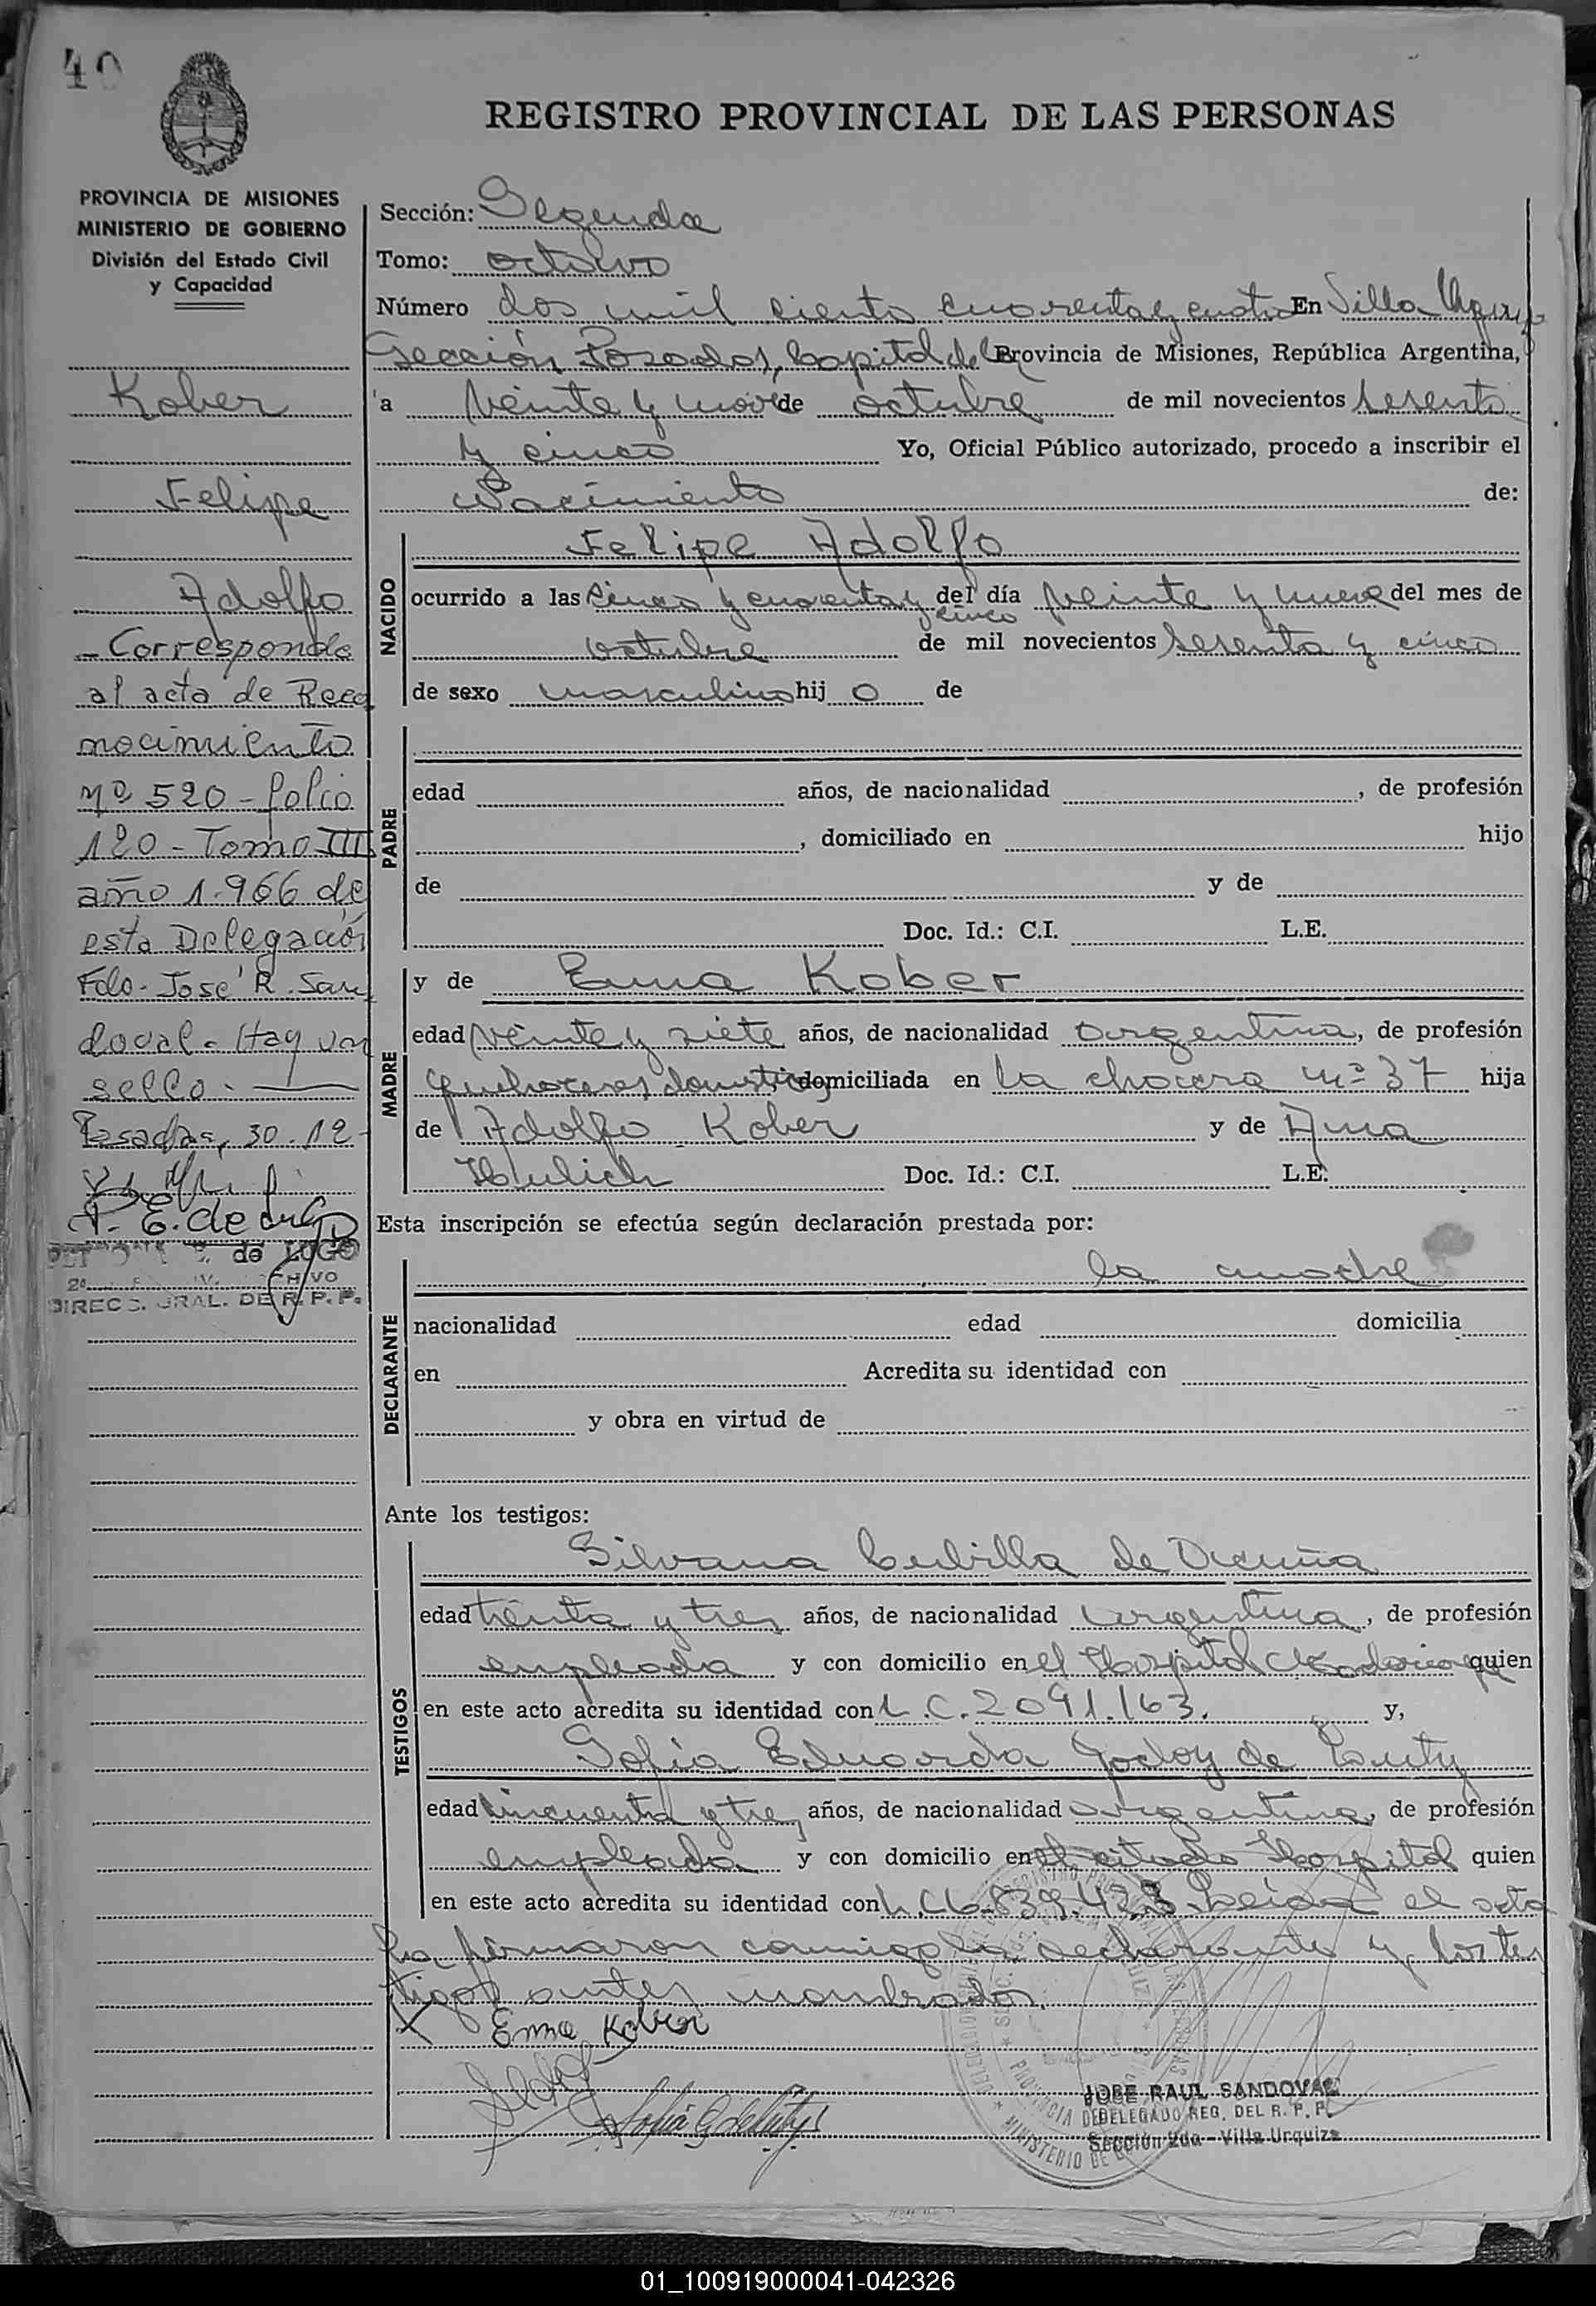 40
REGISTRO PROVINCIAL DE LAS PERSONAS
PROVINCIA DE MISIONES
MINISTERIO DE GOBIERNO
División del Estado Civil
y Capacidad
Kober
Felipe
Adolfo
- Corresponde
al acta de Reco
nocimiento
nº 520 - folio
120 - Tomo III
año 1.966 de
esta Delegación
Fdo. José R. San
doval - Hay un
sello. -
Posadas, 30.12-
P. E. de Lugo
de LUGO
DIRECC. GRAL. DE R. P. P.
Sección: Segunda
Tomo: octavo
Número dos mil ciento cuarenta y cuatro En Villa Urquiza
Sección Posadas, Capital de la Provincia de Misiones, República Argentina,
a veinte y nueve de octubre de mil novecientos sesenta
y cinco Yo, Oficial Público autorizado, procedo a inscribir el
Nacimiento de:
NACIDO
Felipe Adolfo
ocurrido a las cinco y cuarenta y cinco del día veinte y nueve del mes de
octubre de mil novecientos sesenta y cinco
de sexo masculino hijo de
PADRE
edad años, de nacionalidad , de profesión
, domiciliado en hijo
de y de
Doc. Id.: C.I. L.E.
MADRE
y de Ema Kober
edad veinte y siete años, de nacionalidad argentina, de profesión
quehaceres domésticos domiciliada en la chacra nº 37 hija
de Adolfo Kober y de Ana
Doc. Id.: C.I. L.E.
Esta inscripción se efectúa según declaración prestada por:
DECLARANTE
la madre
nacionalidad edad domicilia
en Acredita su identidad con
y obra en virtud de
Ante los testigos:
TESTIGOS
Silvana Cubilla de Vicuña
edad treinta y tres años, de nacionalidad argentina, de profesión
empleada y con domicilio en el Hospital Madariaga quien
en este acto acredita su identidad con L.C. 2091.163. y,
Sofia Eduarda Godoy de
edad cincuenta y tres años, de nacionalidad argentina, de profesión
empleada y con domicilio en el citado Hospital quien
en este acto acredita su identidad con L.C. 6.839.423 Leída el acta
la firmaron conmigo la declarante y los tes
tigos antes nombrados.
X Emma Kober
JOSE RAUL SANDOVAL
DELEGADO REG. DEL R. P. P.
Sección 2da - Villa Urquiza
01_100919000041-042326